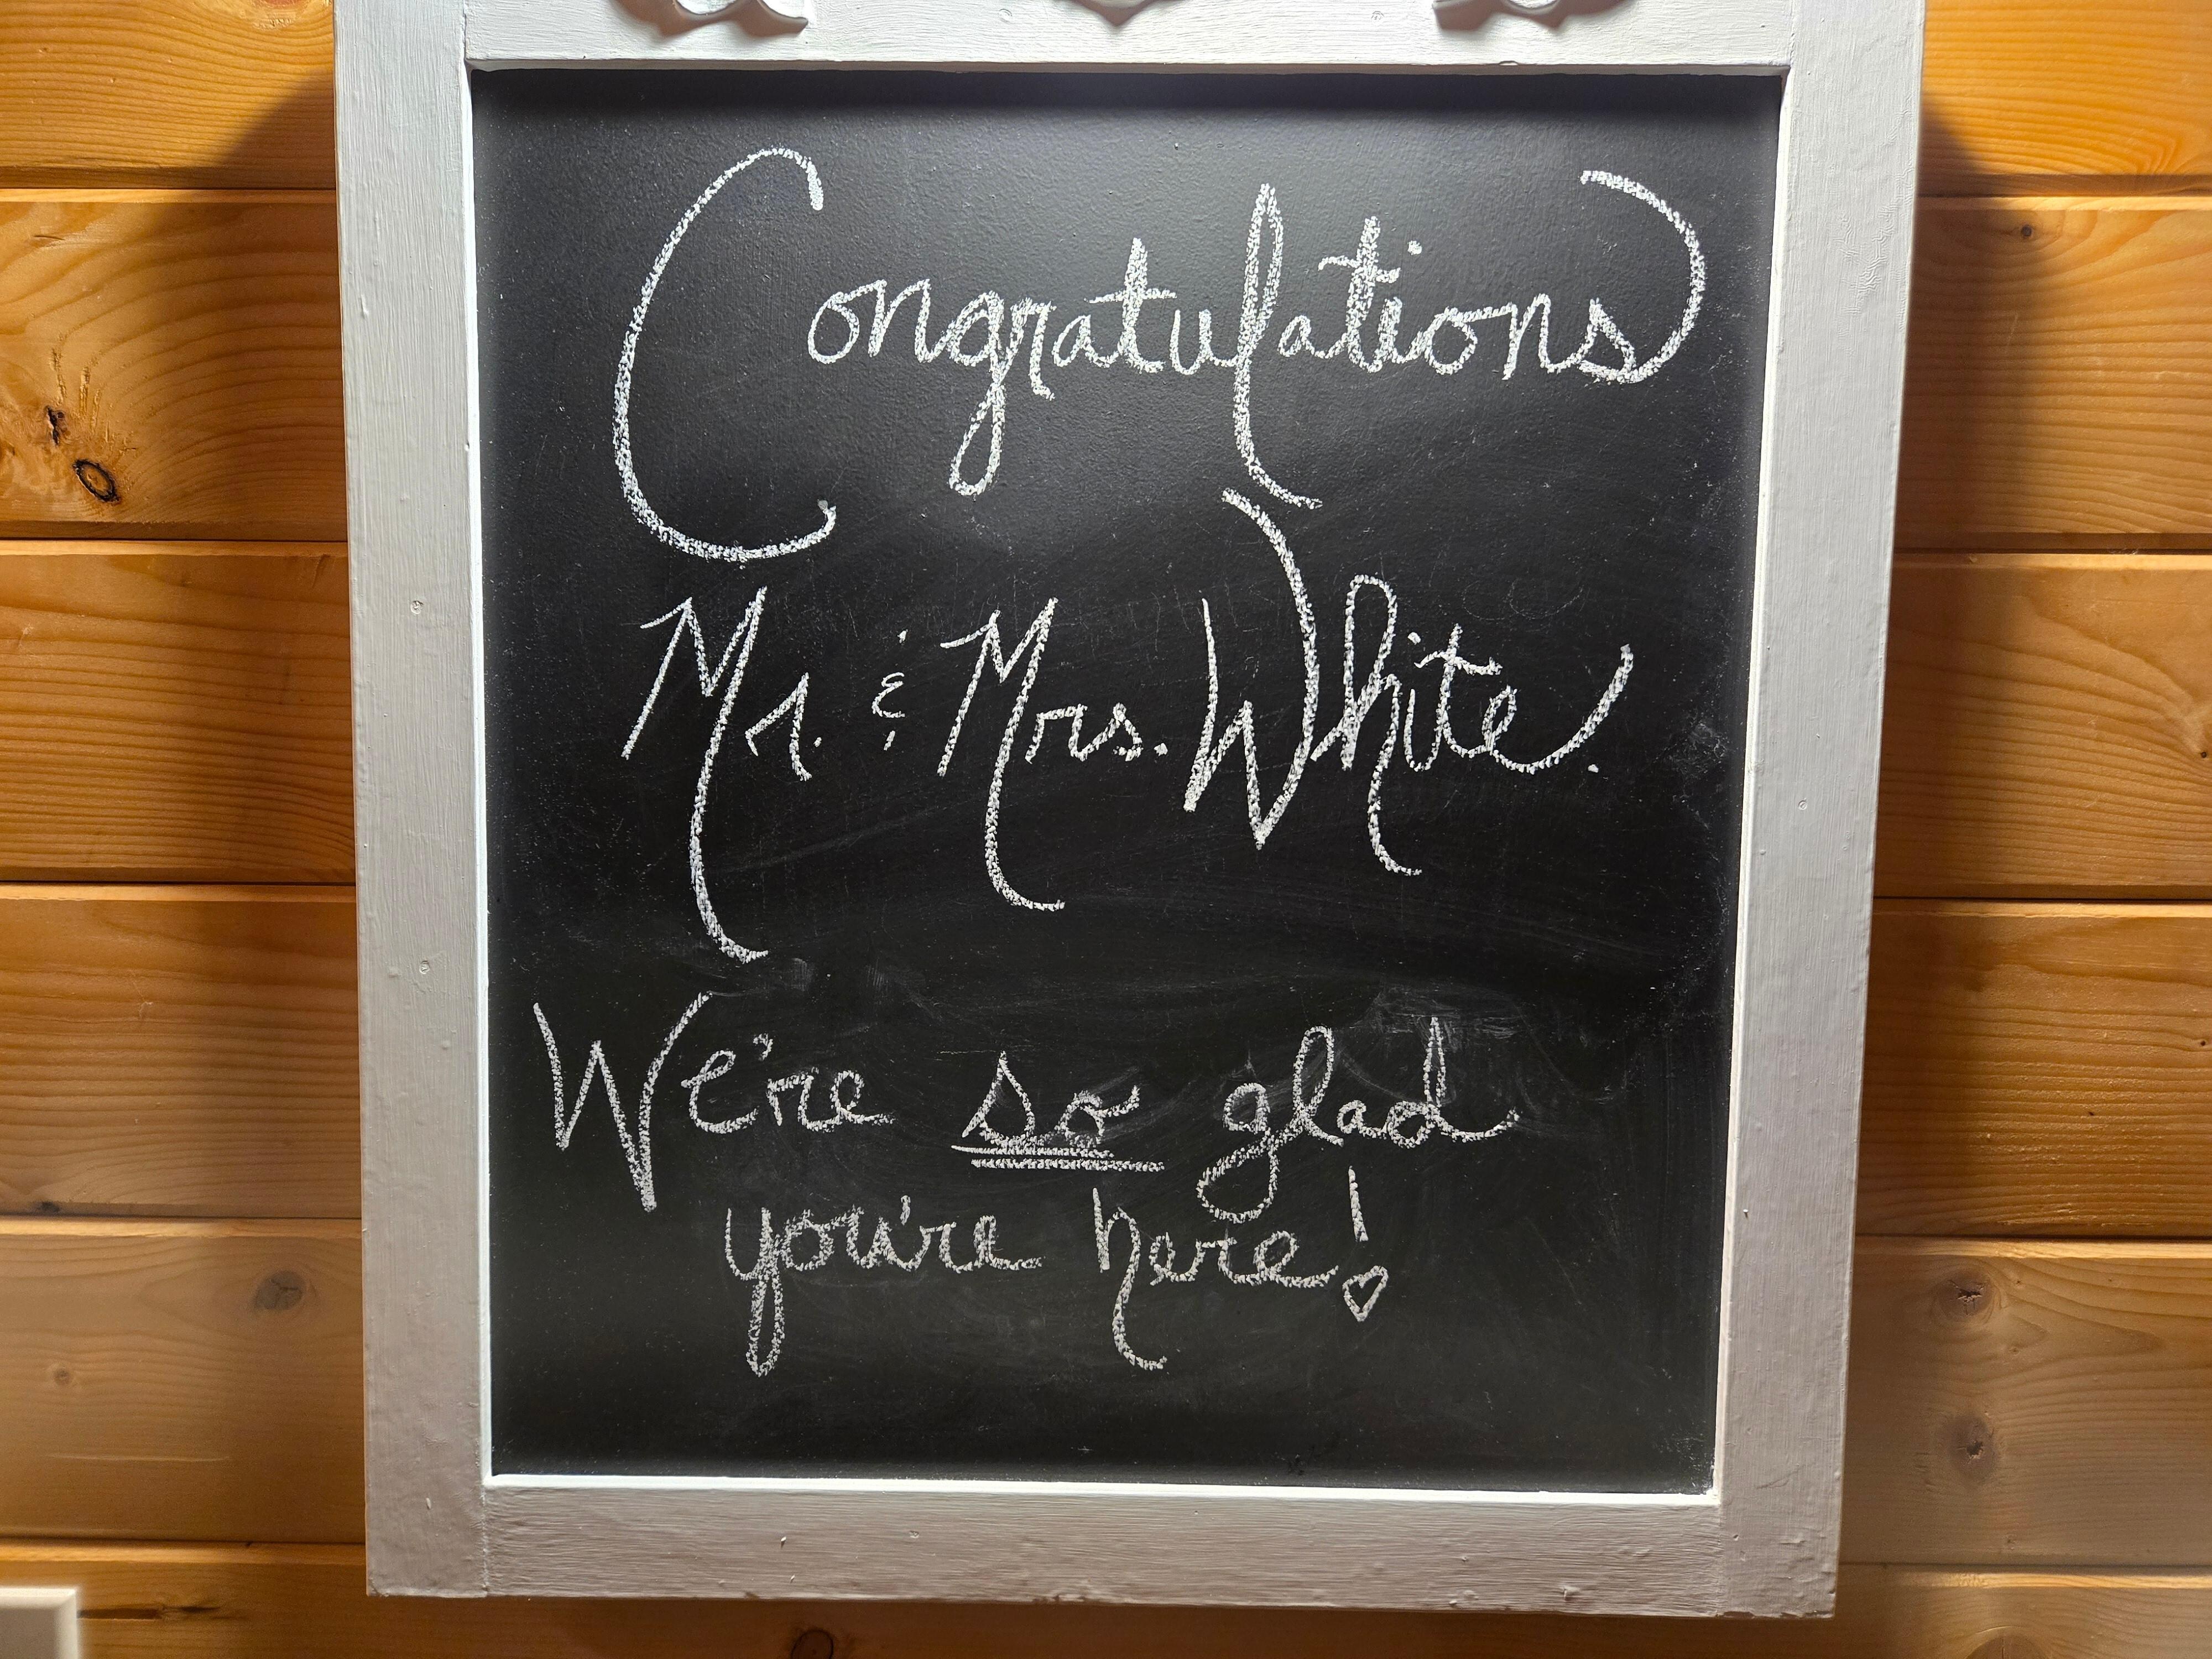 Congratulations
Mr. & Mrs. White.
We're so glad
you're here!